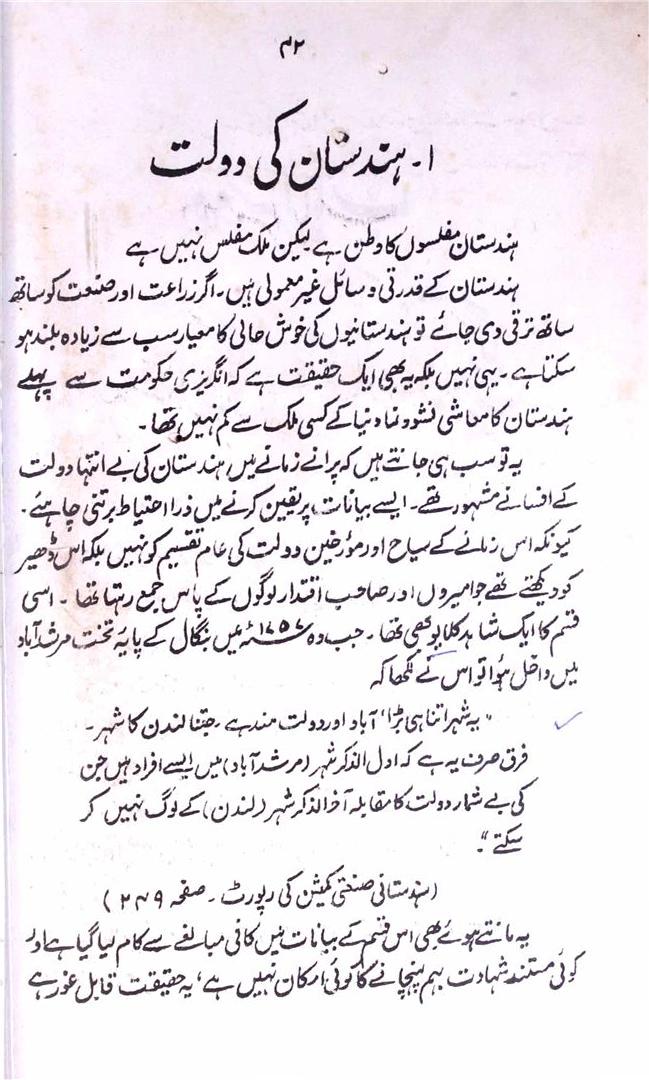 ۴۲
۱۔ ہندستان کی دولت
ہندستان مفلسوں کا وطن ہے لیکن ملک مفلس نہیں ہے
ہندستان کے قدرتی وسائل غیر معمولی ہیں۔ اگر زراعت اور صنعت کو ساتھ
ساتھ ترقی دی جائے تو ہندستانیوں کی خوش حالی کا معیار سب سے زیادہ بلند ہو
سکتا ہے۔ یہی نہیں بلکہ یہ بھی ایک حقیقت ہے کہ انگریزی حکومت سے پہلے
ہندستان کا معاشی نشوونما دنیا کے کسی ملک سے کم نہیں تھا۔
یہ تو سب ہی جانتے ہیں کہ پرانے زمانے میں ہندستان کی بے انتہا دولت
کے افسانے مشہور تھے۔ ایسے بیانات پر یقین کرنے میں ذرا احتیاط برتنی چاہئے۔
کیونکہ اس زمانے کے سیاح اور مؤرخین دولت کی عام تقسیم کو نہیں بلکہ اس ڈھیر
کو دیکھتے تھے جو امیروں اور صاحب اقتدار لوگوں کے پاس جمع رہتا تھا۔ اسی
قسم کا ایک شاہد کلایو بھی تھا۔ جب وہ ۱۷۵۷ء میں بنگال کے پایۂ تخت مرشد آباد
میں داخل ہوا تو اس نے لکھا کہ
"یہ شہر اتنا ہی بڑا، آباد اور دولت مند ہے۔ جتنا لندن کا شہر۔
فرق صرف یہ ہے کہ اول الذکر شہر (مرشد آباد) میں ایسے افراد ہیں جن
کی بے شمار دولت کا مقابلہ آخر الذکر شہر (لندن) کے لوگ نہیں کر
سکتے"۔
(ہندستانی صنعتی کمیشن کی رپورٹ۔ صفحہ ۲۴۹)
یہ مانتے ہوئے بھی اس قسم کے بیانات میں کافی مبالغے سے کام لیا گیا ہے اور
کوئی مستند شہادت بہم پہنچانے کا کوئی ارکان نہیں ہے، یہ حقیقت قابل غور ہے